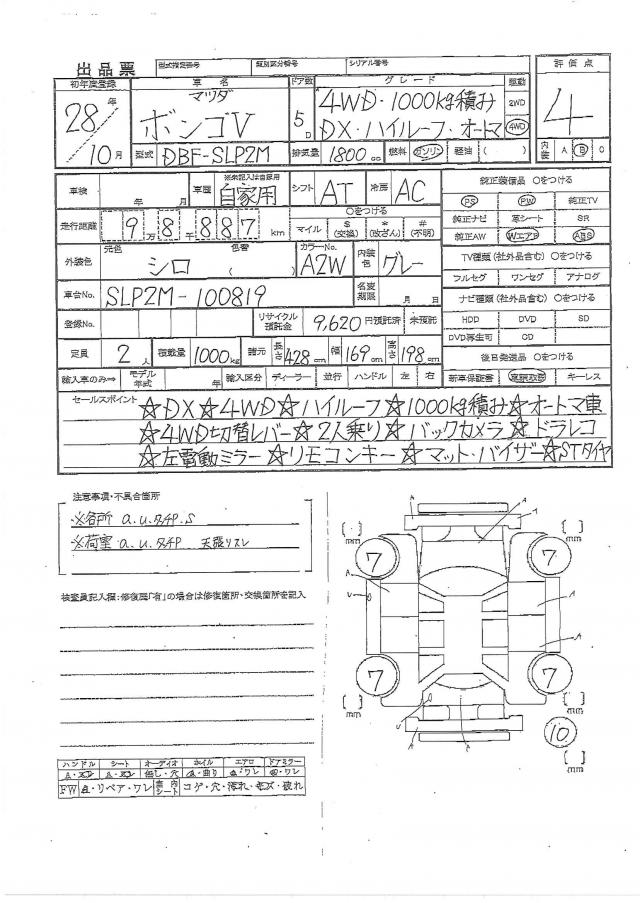 出品票 型式指定番号 類別区分番号 シリアル番号
初年度登録 車名 ドア数 グレード 駆動 評価点
28年 マツダ 4WD・1000kg積み 2WD
ボンゴV 5D DX・ハイルーフ・オートマ 4WD 4
10月 型式 DBF-SLP2M 排気量 1800cc 燃料 ガソリン 軽油 ( ) 内装 A B C
車検 年 月 車歴 ※未記入は自家用 自家用 シフト AT 冷房 AC 純正装備品 ○をつける
PS PW 純正TV
走行距離 9万8千887km ○をつける
マイル $(交換) *(改ざん) #(不明) 純正ナビ 革シート SR
純正AW WエアB ABS
外装色 元色 シロ 色替 カラーNo. A2W 内装色 グレー
TV種類(社外品含む) ○をつける
フルセグ ワンセグ アナログ
車台No. SLP2M-100819 名変期限 月 日
ナビ種類(社外品含む) ○をつける
登録No. リサイクル預託金 9,620円預託済 未預託
HDD DVD SD
DVD再生可 CD
定員 2人 積載量 1000kg 諸元 長さ 428cm 幅 169cm 高さ 198cm
後日発送品 ○をつける
輸入車のみ⇒ モデル年式 年 輸入区分 ディーラー 並行 ハンドル 左 右
新車保証書 取説 キーレス
セールスポイント ☆DX☆4WD☆ハイルーフ☆1000kg積み☆オートマ車
☆4WD切替レバー☆2人乗り☆バックカメラ☆ドラレコ
☆左電動ミラー☆リモコンキー☆マット・バイザー☆STタイヤ
注意事項・不具合箇所
※各所 a.u.タチP.S
※荷室 a.u.タチP 天張りスレ
検査員記入欄:修復歴「有」の場合は修復箇所・交換箇所を記入
[ ] mm A A A [ ] mm
7 7
A U A
A
7 7
[ ] mm U A [ ] mm
A 10
[ ] mm
ハンドル シート オーディオ ホイル エアロ ドアミラー
A・スレ A・スレ 無し・穴 a・曲り a・ワレ a・ワレ
FW a・リペア・ワレ 車内シート コゲ・穴・汚れ・キズ・破れ